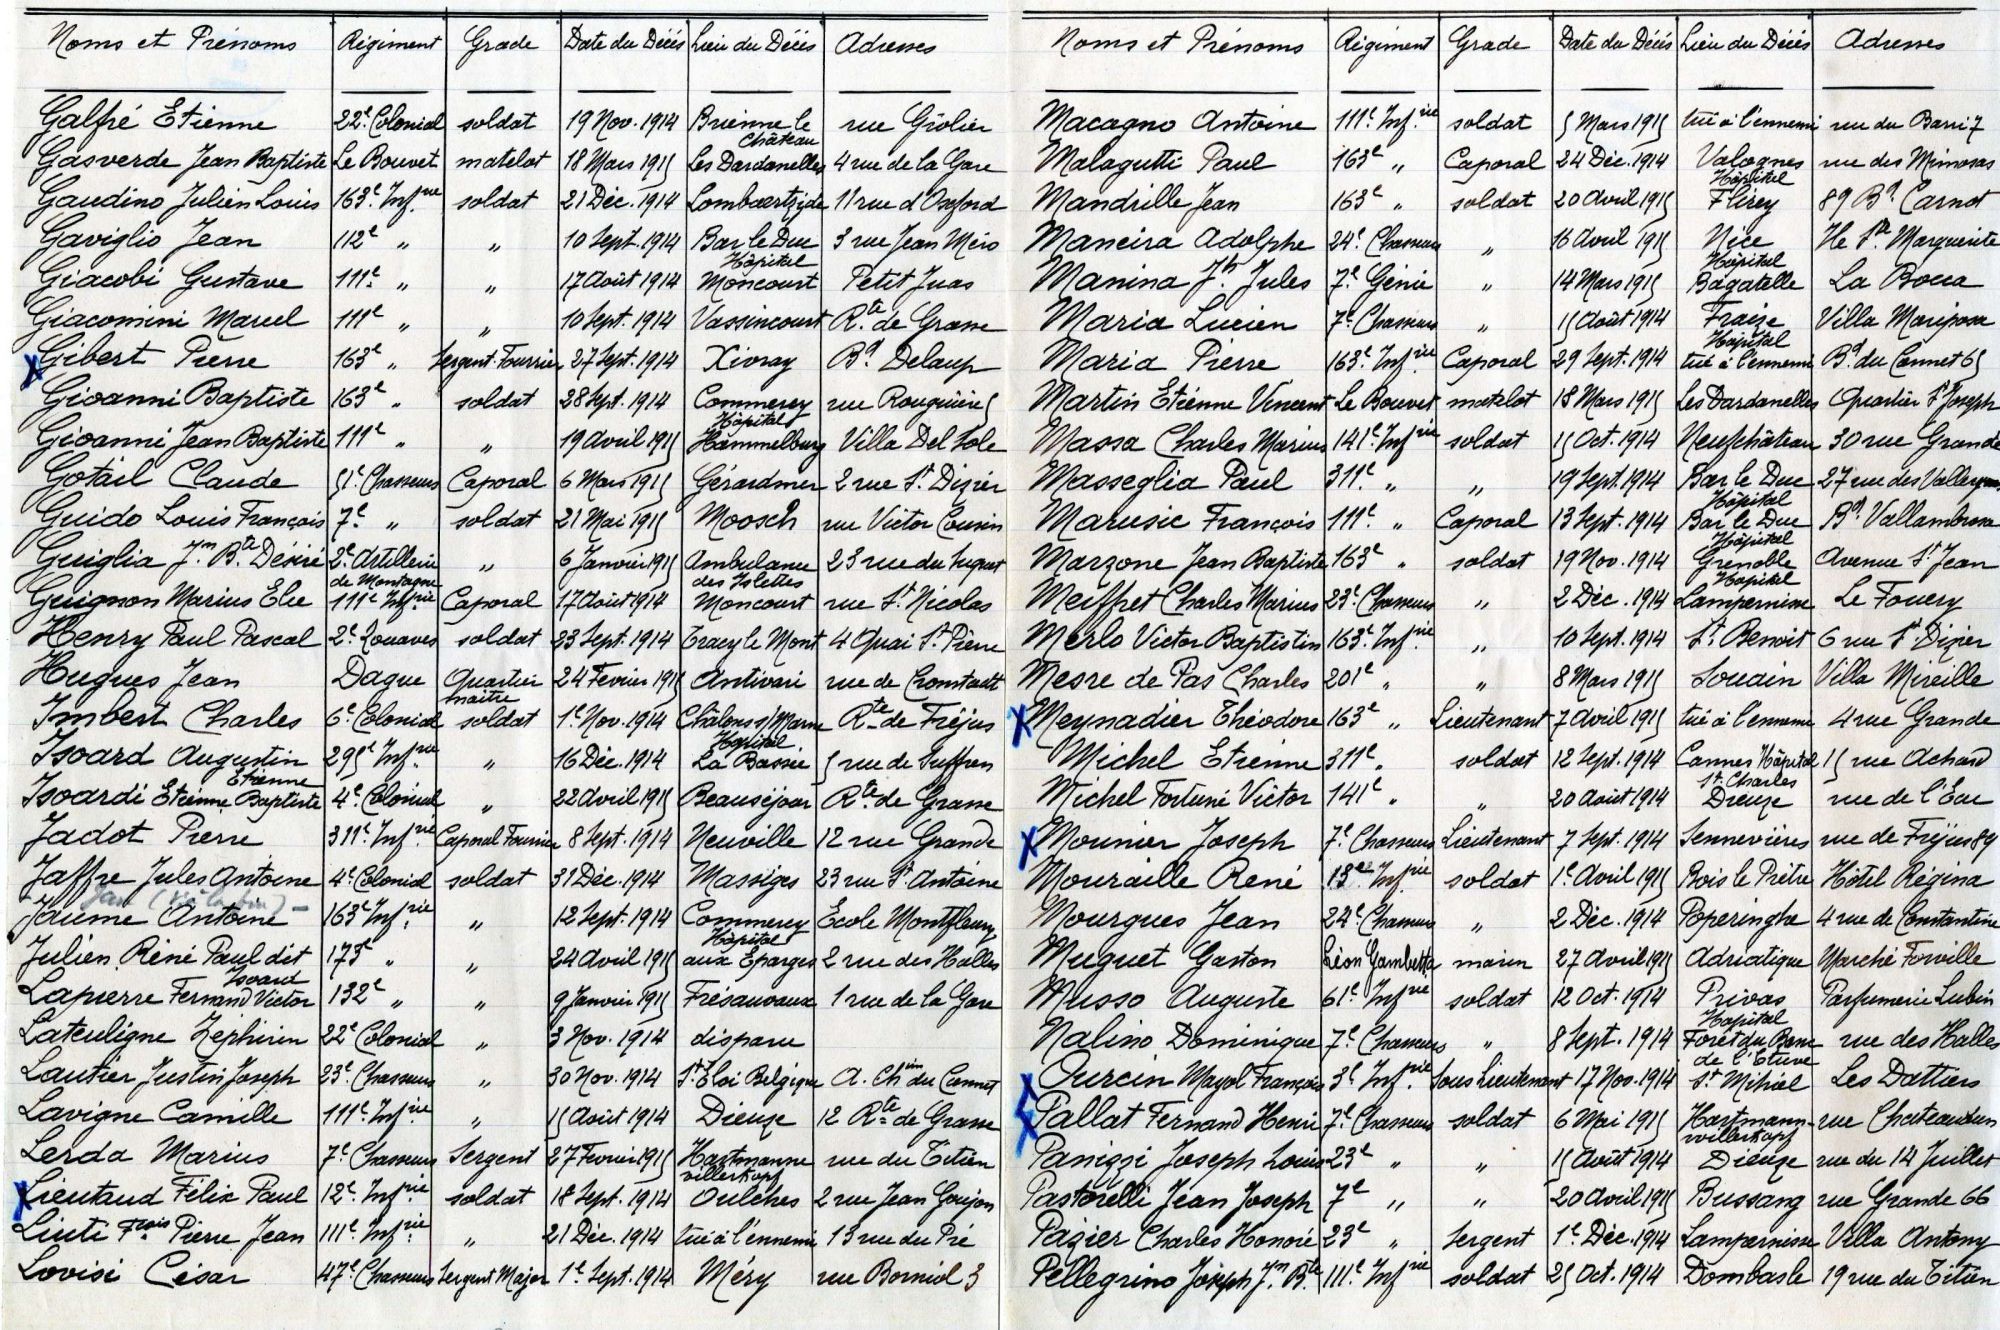 Noms et Prénoms Régiment Grade Date du Décès Lieu du Décès Adresses
Galfré Etienne 22e Colonial soldat 19 Nov. 1914 Brienne le Château rue Grolier
Gasverde Jean Baptiste Le Bouvet matelot 18 Mars 1915 Les Dardanelles 4 rue de la Gare
Gaudino Julien Louis 163e Inf.rie soldat 21 Déc. 1914 Lombaertzijde 11 rue d'Oxford
Gaviglio Jean 112e " " 10 Sept. 1914 Bar le Duc Hôpital 3 rue Jean Méro
Giacobi Gustave 111e " " 17 Août 1914 Moncourt Petit Juas
Giacomini Marcel 111e " " 10 Sept. 1914 Vassincourt Rte de Grasse
Gibert Pierre 163e " Sergent Fourrier 27 Sept. 1914 Xivray Bd Delaup
Gioanni Baptiste 163e " soldat 28 Sept. 1914 Commercy Hôpital rue Rouguière 5
Gioanni Jean Baptiste 111e " " 19 Avril 1915 Hammelburg Villa Del Sole
Gotail Claude 51e Chasseurs Caporal 6 Mars 1915 Gérardmer 2 rue St Dizier
Guido Louis François 7e " soldat 21 Mai 1915 Moosch rue Victor Cousin
Guiglia Jn Bte Désiré 2e Artillerie de Montagne " 6 Janvier 1915 Ambulance des Islettes 23 rue du Suquet
Guignon Marius Elie 111e Inf.rie Caporal 17 Août 1914 Moncourt rue St Nicolas
Henry Paul Pascal 2e Zouaves soldat 23 Sept. 1914 Tracy le Mont 4 Quai St Pierre
Hugues Jean Dague Quartier maître 24 Fevrier 1915 Antivari rue de Cronstadt
Imbert Charles 6e Colonial soldat 1e Nov. 1914 Châlons s/Marne Hôpital Rte de Fréjus
Isoard Augustin 295e Inf.rie " 16 Déc. 1914 La Bassée 5 rue de Suffren
Isoardi Etienne Baptiste Etienne 4e Colonial " 22 Avril 1915 Beauséjour Rte de Grasse
Jadot Pierre 311e Inf.rie Caporal Fourrier 8 Sept. 1914 Neuville 12 rue Grande
Jaffre Jules Antoine 4e Colonial soldat 31 Déc. 1914 Massiges 23 rue St Antoine
Jaume Antoine 163e Inf.rie " 12 Sept. 1914 Commercy Hôpital Ecole Montfleury
Julien René Paul dit Isoard 173e " " 24 Avril 1915 aux Eparges 2 rue des Halles
Lapierre Fernand Victor 132e " " 9 Janvier 1915 Frésauvaux 1 rue de la Gare
Lateuligne Zephirin 22e Colonial " 3 Nov. 1914 disparu
Lautier Justin Joseph 23e Chasseurs " 30 Nov. 1914 St Eloi Belgique A. Chin du Cannet
Lavigne Camille 111e Inf.rie " 15 Août 1914 Dieuze 12 Rte de Grasse
Lerda Marius 7e Chasseurs Sergent 27 Fevrier 1915 Hartmanne villerkopf rue du Titien
Lieutaud Félix Paul 12e Inf.rie soldat 18 Sept. 1914 Oulches 2 rue Jean Goujon
Liuti Frois Pierre Jean 111e Inf.rie " 21 Déc. 1914 tué à l'ennemi 13 rue du Pré
Lovisi César 47e Chasseurs Sergent Major 1e Sept. 1914 Méry rue Borniol 3
Noms et Prénoms Régiment Grade Date du Décès Lieu du Décès Adresses
Macagno Antoine 111e Inf.rie soldat 5 Mars 1915 tué à l'ennemi rue du Barri 7
Malagutti Paul 163e " Caporal 24 Déc. 1914 Valognes Hôpital rue des Mimosas
Mandrille Jean 163e " soldat 20 Avril 1915 Flirey 89 Bd Carnot
Maneira Adolphe 24e Chasseurs " 16 Avril 1915 Nice Hôpital Ile Ste Marguerite
Manina Jh Jules 7e Génie " 14 Mars 1915 Bagatelle La Bocca
Maria Lucien 7e Chasseurs " 15 Août 1914 Fraize Hôpital Villa Mariposa
Maria Pierre 163e Inf.rie Caporal 29 Sept. 1914 tué à l'ennemi Bd du Cannet 65
Martin Etienne Vincent Le Bouvet matelot 18 Mars 1915 Les Dardanelles Quartier St Joseph
Massa Charles Marius 141e Inf.rie soldat 15 Oct. 1914 Neufchâteau 30 rue Grande
Masseglia Paul 311e " " 19 Sept. 1914 Bar le Duc Hôpital 27 rue des Vallergues
Marusic François 111e " Caporal 13 Sept. 1914 Bar le Duc Hôpital Bd Vallombrosa
Marzone Jean Baptiste 163e " soldat 19 Nov. 1914 Grenoble Hôpital Avenue St Jean
Meiffret Charles Marius 23e Chasseurs " 2 Déc. 1914 Lampernisse Le Fouery
Merlo Victor Baptistin 163e Inf.rie " 10 Sept. 1914 St Benoit 6 rue St Dizier
Mesre de Pas Charles 201e " " 8 Mars 1915 Souain Villa Mireille
Meynadier Théodore 163e " Lieutenant 7 Avril 1915 tué à l'ennemi 4 rue Grande
Michel Etienne 311e " soldat 12 Sept. 1914 Cannes Hôpital St Charles 15 rue Achard
Michel Fortuné Victor 141e " " 20 Août 1914 Dieuze rue de l'Eau
Mounier Joseph 7e Chasseurs Lieutenant 7 Sept. 1914 Sennevières rue de Fréjus 89
Mouraille René 13e Inf.rie soldat 1e Avril 1915 Bois le Prêtre Hôtel Régina
Mourgues Jean 24e Chasseurs " 2 Déc. 1914 Poperinghe 4 rue de Constantine
Muguet Gaston Léon Gambetta marin 27 Avril 1915 Adriatique Marché Forville
Musso Auguste 61e Inf.rie soldat 12 Oct. 1914 Privas Hôpital Parfumerie Lubin
Nalino Dominique 7e Chasseurs " 8 Sept. 1914 Forêt du Bom de l'Etuve rue des Halles
Ourcin Mayol François 3e Inf.rie Sous Lieutenant 17 Nov. 1914 St Mihiel Les Dattiers
Pallat Fernand Henri 7e Chasseurs soldat 6 Mai 1915 Hartmann-willerkopf rue Chateaudun
Panizzi Joseph Louis 23e " " 15 Août 1914 Dieuze rue du 14 Juillet
Pastorelli Jean Joseph 7e " " 20 Avril 1915 Bussang rue Grande 66
Pazier Charles Honoré 23e " Sergent 1e Déc. 1914 Lampernisse Villa Antony
Pellegrino Joseph Jn Bte 111e Inf.rie soldat 25 Oct. 1914 Dombasle 19 rue du Titien